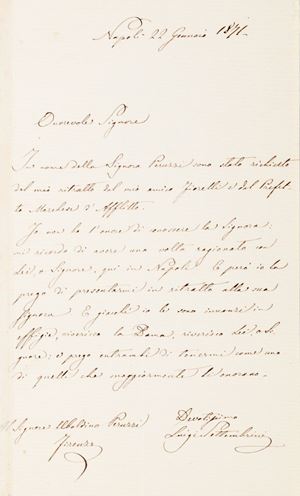 Napoli 22 Gennaio 1871.
Onorevole Signore
In nome della Signora Peruzzi sono stato richiesto
del mio ritratto dal mio amico Fiorelli e dal Prefet-
to Marchese d'Afflitto.
Io non ho l'onore di conoscere la Signora:
mi ricordo di avere una volta ragionato con
Lei, o Signore, qui in Napoli. E però io la
prego di presentarmi in ritratto alla sua
Signora. E giacchè io le sono innanzi in
effigie, riverisco la Dama, riverisco Lei, o Si-
gnore; e prego entrambi di tenermi come uno
di quelli che maggiormente li onorano.
Signore Ubaldino Peruzzi
Firenze
Devotissimo
Luigi Settembrini